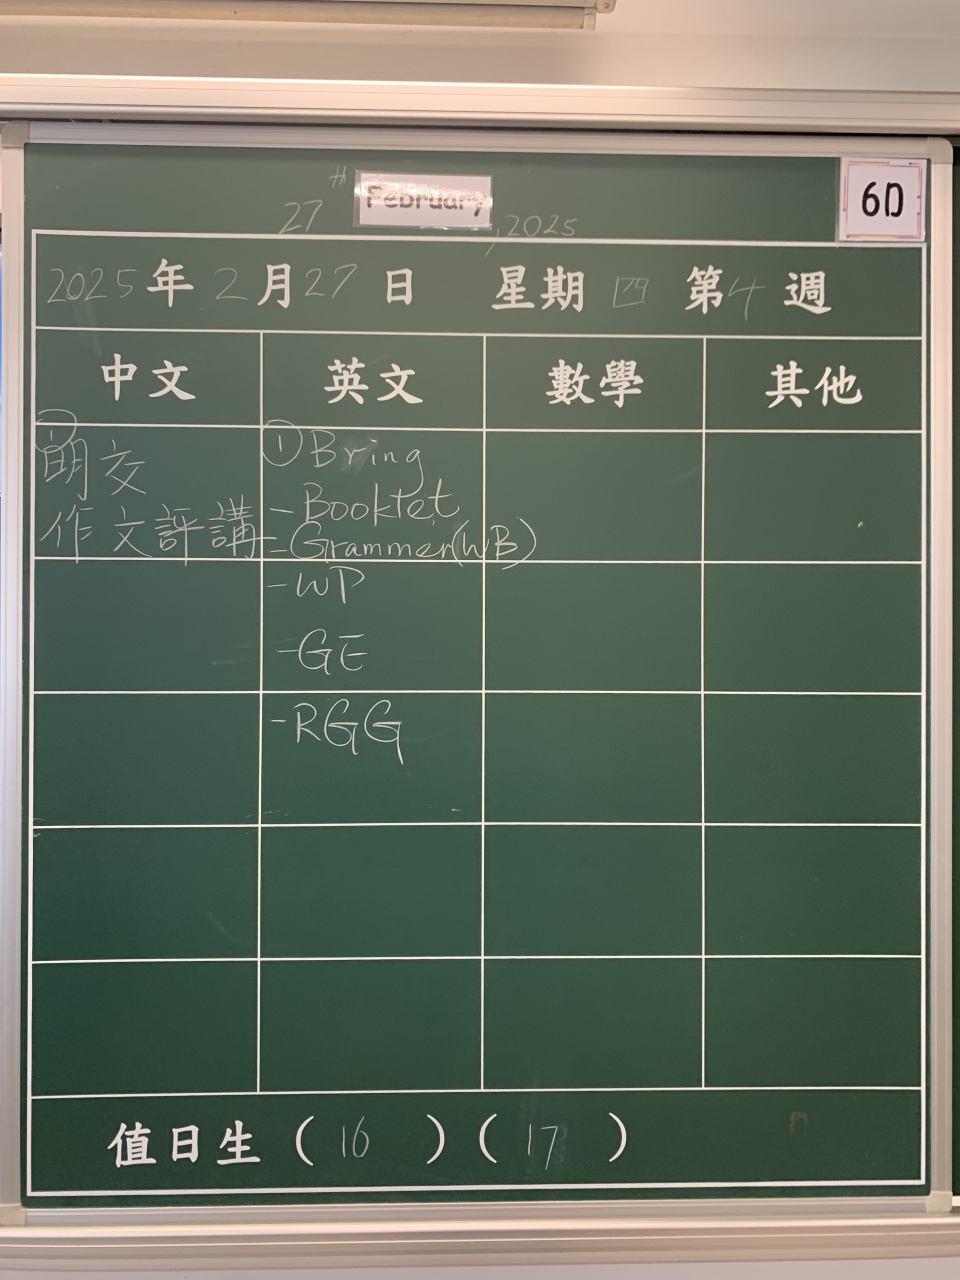 27th February, 2025
6D
2025年2月27日 星期四 第4週
中文 英文 數學 其他
明交
作文評講
① Bring
- Booklet
- Grammer(WB)
- WP
- GE
- RGG
值日生 ( 16 ) ( 17 )